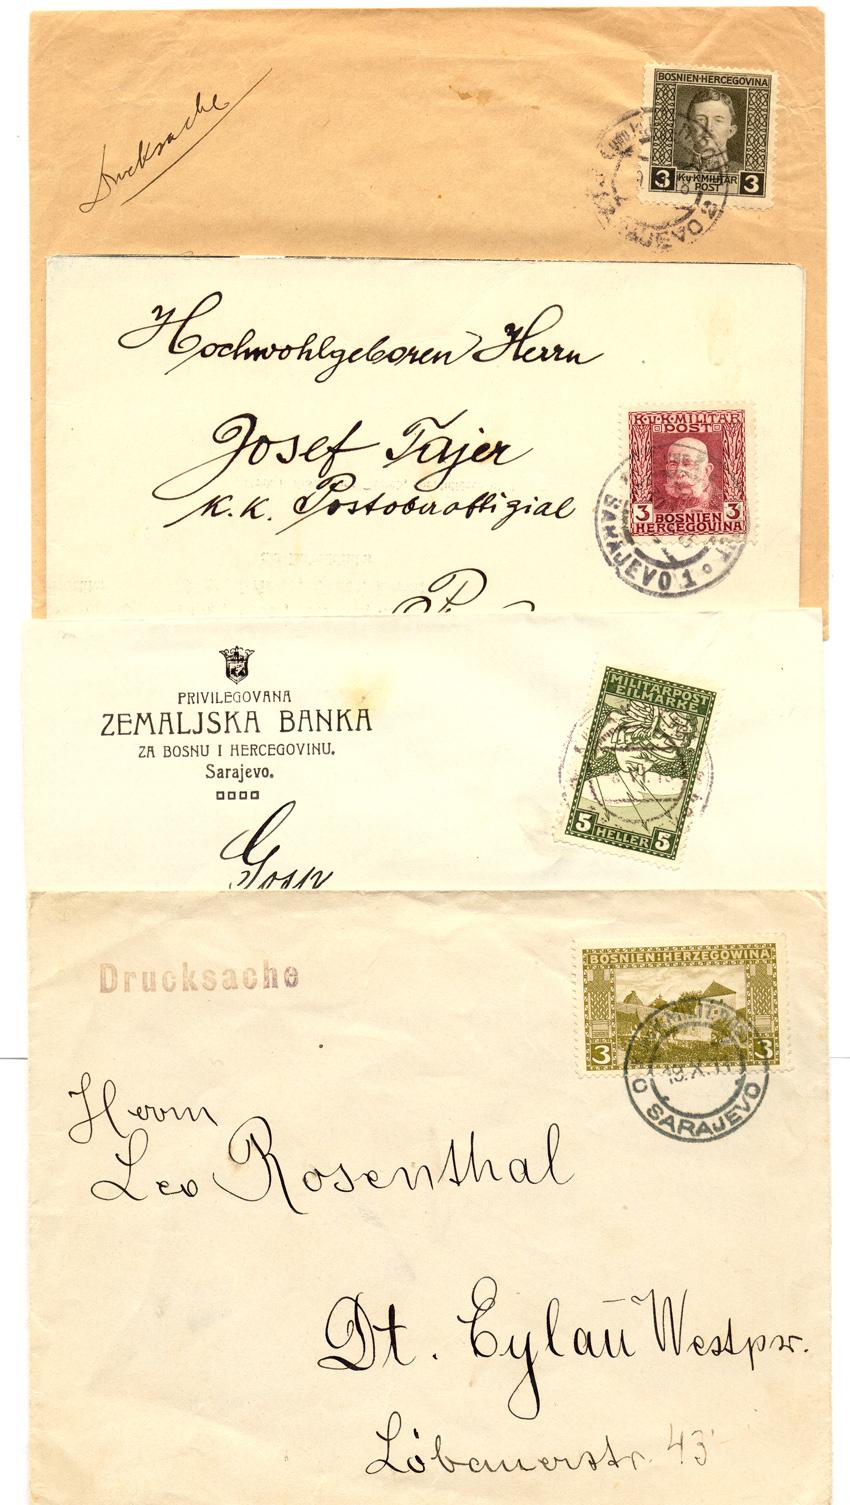 Drucksache
BOSNIEN-HERCEGOVINA
3 K.u.K. MILITÄR 3
POST
Hochwohlgeboren Herrn
Josef Tajer
K.K. Postoberoffizial
K.u.K. MILITÄR
POST
3 BOSNIEN 3
HERCEGOVINA
SARAJEVO 1
PRIVILEGOVANA
ZEMALJSKA BANKA
ZA BOSNU I HERCEGOVINU.
Sarajevo.
Gosp
MILITÄRPOST
EILMARKE
5 HELLER 5
Drucksache
BOSNIEN-HERZEGOWINA
3 3
SARAJEVO
Herrn
Leo Rosenthal
Dt. Eylau Westpr.
Löbauerstr. 43